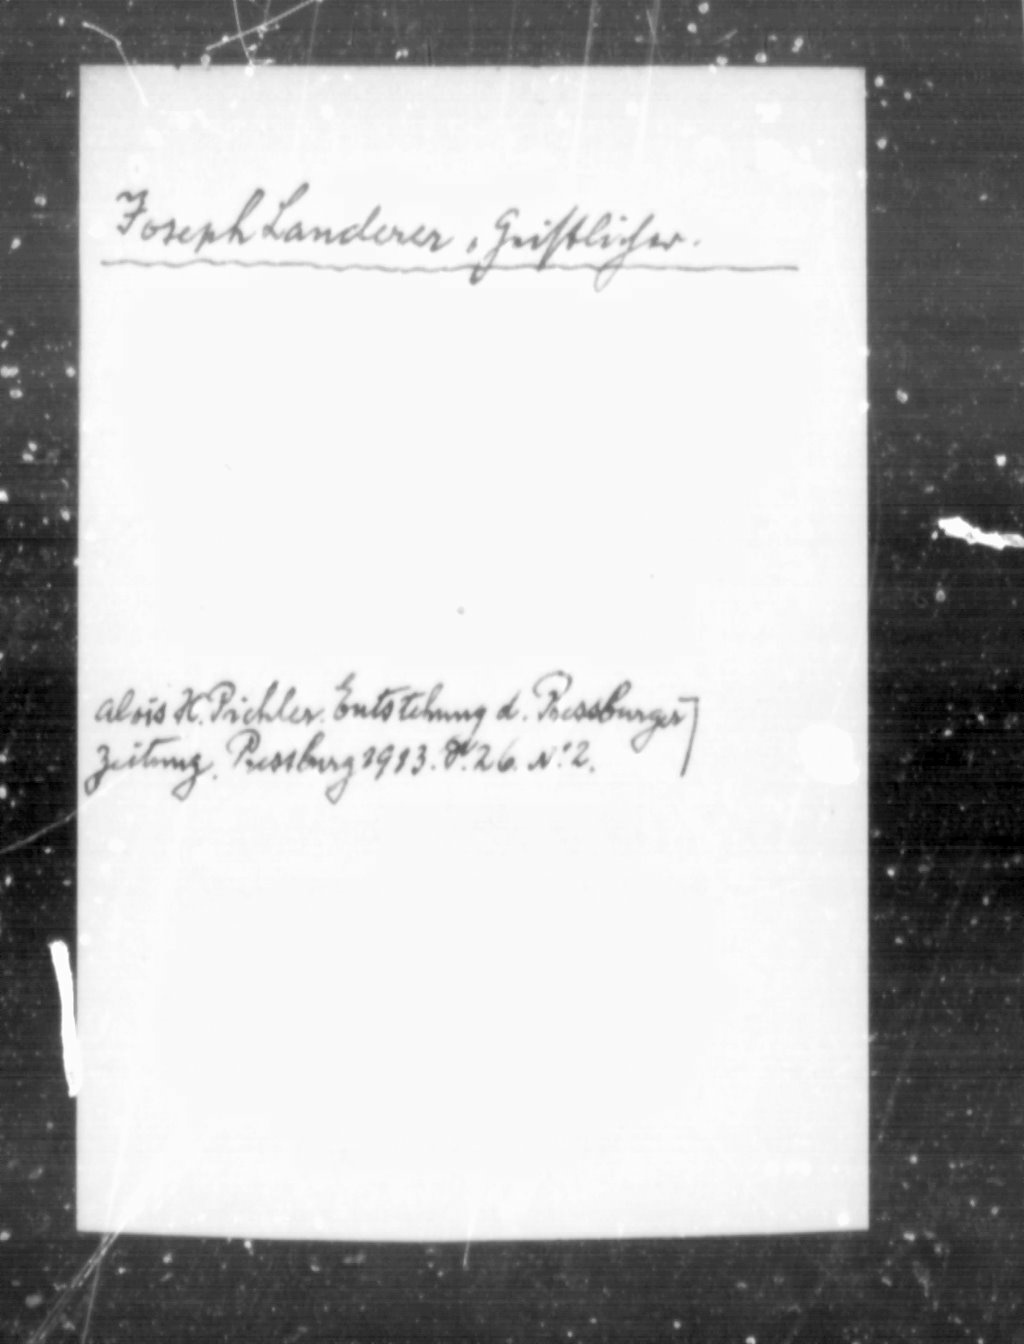 Joseph Landerer, Geistlicher.
Alois H. Pichler. Entstehung d. Pressburger
Zeitung. Pressburg 1913. S. 26. No. 2.